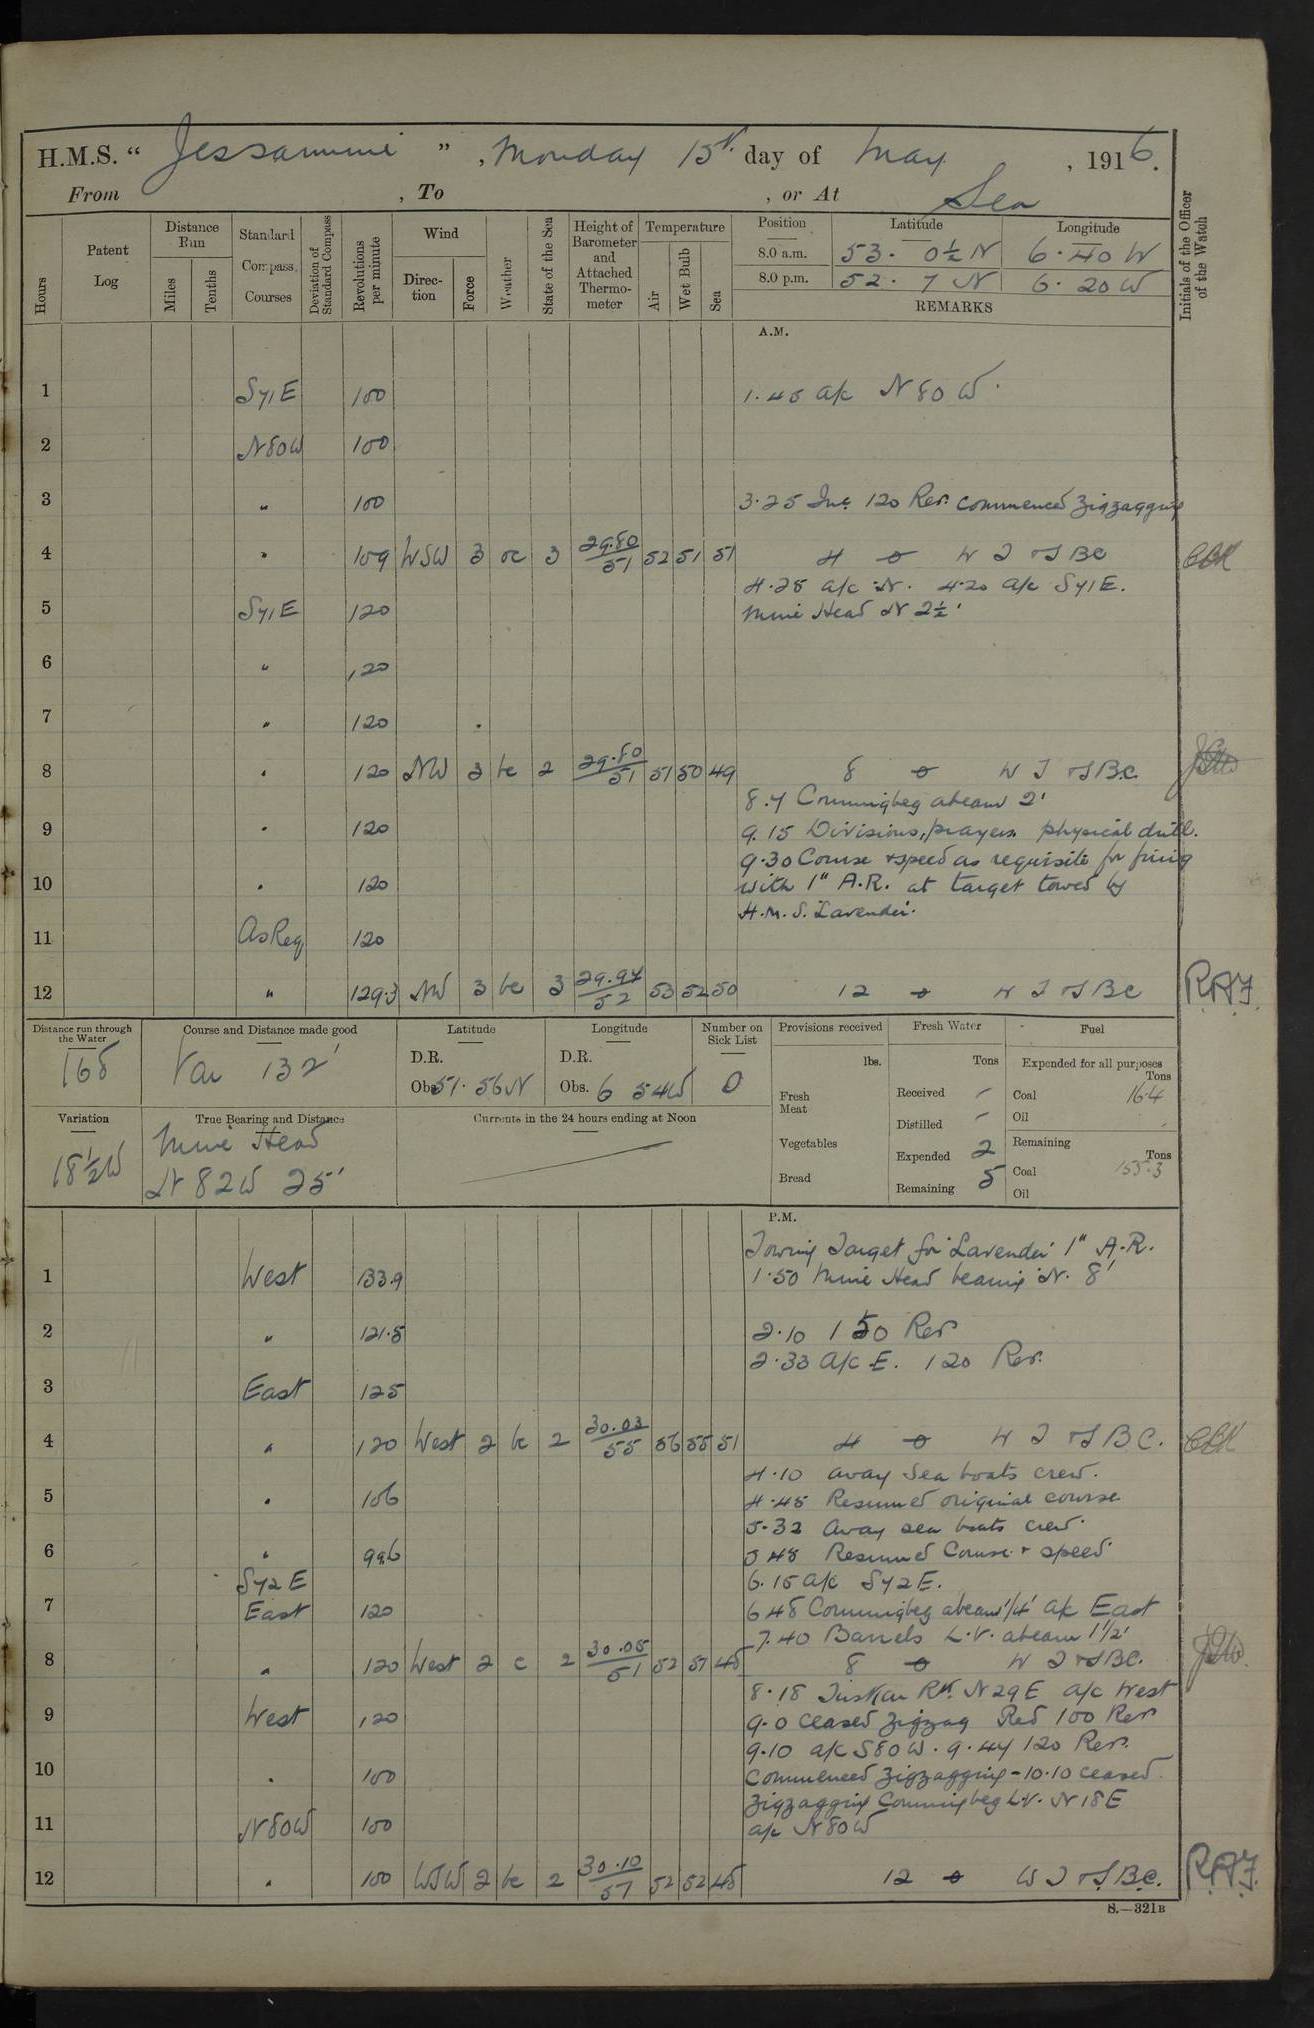 H.M.S. “ Jessamine ” , Monday 15th day of May , 1916.
From , To , or At Sea
Hours
Patent Log
Distance Run
Miles
Tenths
Standard Compass Courses
Deviation of Standard Compass
Revolutions per minute
Wind
Direction
Force
Weather
State of the Sea
Height of Barometer and Attached Thermometer
Temperature
Air
Wet Bulb
Sea
Position Latitude Longitude
8.0 a.m. 53. 0½ N 6.40 W
8.0 p.m. 52. 7 N 6. 20 W
REMARKS
Initials of the Officer of the Watch
A.M.
1 Sy1E 100 1.45 a/c N 80 W.
2 N80W 100
3 " 100 3.25 Inc 120 Rev. commenced zigzagging
4 " 109 WSW 3 oc 3 29.80/51 52 51 51 4 o W T & S B C
4.25 a/c N. 4.20 a/c Sy1E.
5 Sy1E 120 Mine Head N 2½'
6 " 120
7 " 120
8 " 120 NW 3 bc 2 29.80/51 51 50 49 8 o W T & S B.C.
8.7 Conningbeg abeam 2'
9 " 120 9.15 Divisions, prayers. physical drill.
9.30 Course & speed as requisite for firing
10 " 120 with 1" A.R. at target towed by
H.M.S. Lavender.
11 As Req 120
12 " 129.3 NW 3 bc 3 29.97/52 53 52 50 12 o W T & S B C R.A.J.
Distance run through the Water
168
Course and Distance made good
Var 132'
Latitude
D.R.
Obs. 51. 56 N
Longitude
D.R.
Obs. 6 54W
Number on Sick List
0
Provisions received
lbs.
Fresh Meat
Vegetables
Bread
Fresh Water
Tons
Received -
Distilled -
Expended 2
Remaining 5
Fuel
Expended for all purposes
Tons
Coal 16.4
Oil
Remaining
Tons
Coal 153.3
Oil
Variation
18½W
True Bearing and Distance
Mine Head
N 82W 25'
Currents in the 24 hours ending at Noon
P.M.
Towing Target for 'Lavender' 1" A.R.
1 West 133.9 1.50 Mine Head bearing N. 8'
2 " 121.5 2.10 150 Rev
2.33 a/c E. 120 Rev.
3 East 125
4 " 120 West 2 bc 2 30.03/55 56 55 51 4 o W T & S B C.
4.10 away Sea boats crew.
5 " 106 4.45 Resumed original course
5.32 Away sea boats crew.
6 " 99.6 5.48 Resumed Course & speed
Sy2E 6.15 a/c Sy2E.
7 East 120 6.48 Conningbeg abeam 1/4' a/c East
7.40 Barrels L.V. abeam 1½'
8 " 120 West 2 c 2 30.05/51 52 51 48 8 o W T & S B C.
8.18 Tuskar Rk. N29E a/c West
9 West 120 9.0 ceased zigzag Red 100 Rev
9.10 a/c S80W. 9.44 120 Rev.
10 " 100 Commenced zigzagging - 10.10 ceased
zigzagging Conningbeg L.V. N18E
11 N80W 100 a/c N80W
12 " 100 WSW 2 bc 2 30.10/51 52 52 48 12 o W T & S B.C. R.A.J.
S.—321B